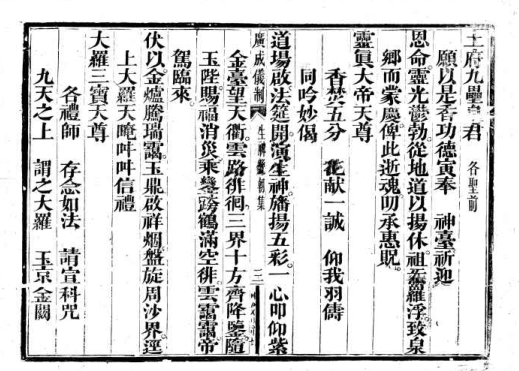 土府九壘皇君 各聖前
願以是香功德寅奉 神臺祈迎
恩命靈光鬱勃從地道以揚休祖炁羅浮致泉
鄉而蒙慶俾此逝魂叨承惠貺。
靈眞大帝天尊
香焚五分 花献一誠 仰我羽儔
同吟妙偈
道場啟法筵開演生神旛揚五彩一心叩仰紫
廣成儀制 生神 集 三
金臺望天衢雲路徘徊三界十方齊降鑒隨
玉陛賜福消災乘鸞跨鶴滿空徘雲靄靄帝
駕臨來。
伏以金爐騰瑞靄玉鼎啟祥烟盤旋周沙界逕
上大羅天唵吽吽信禮
大羅三寶天尊
各禮師 存念如法 請宣科咒
九天之上 謂之大羅 玉京金闕